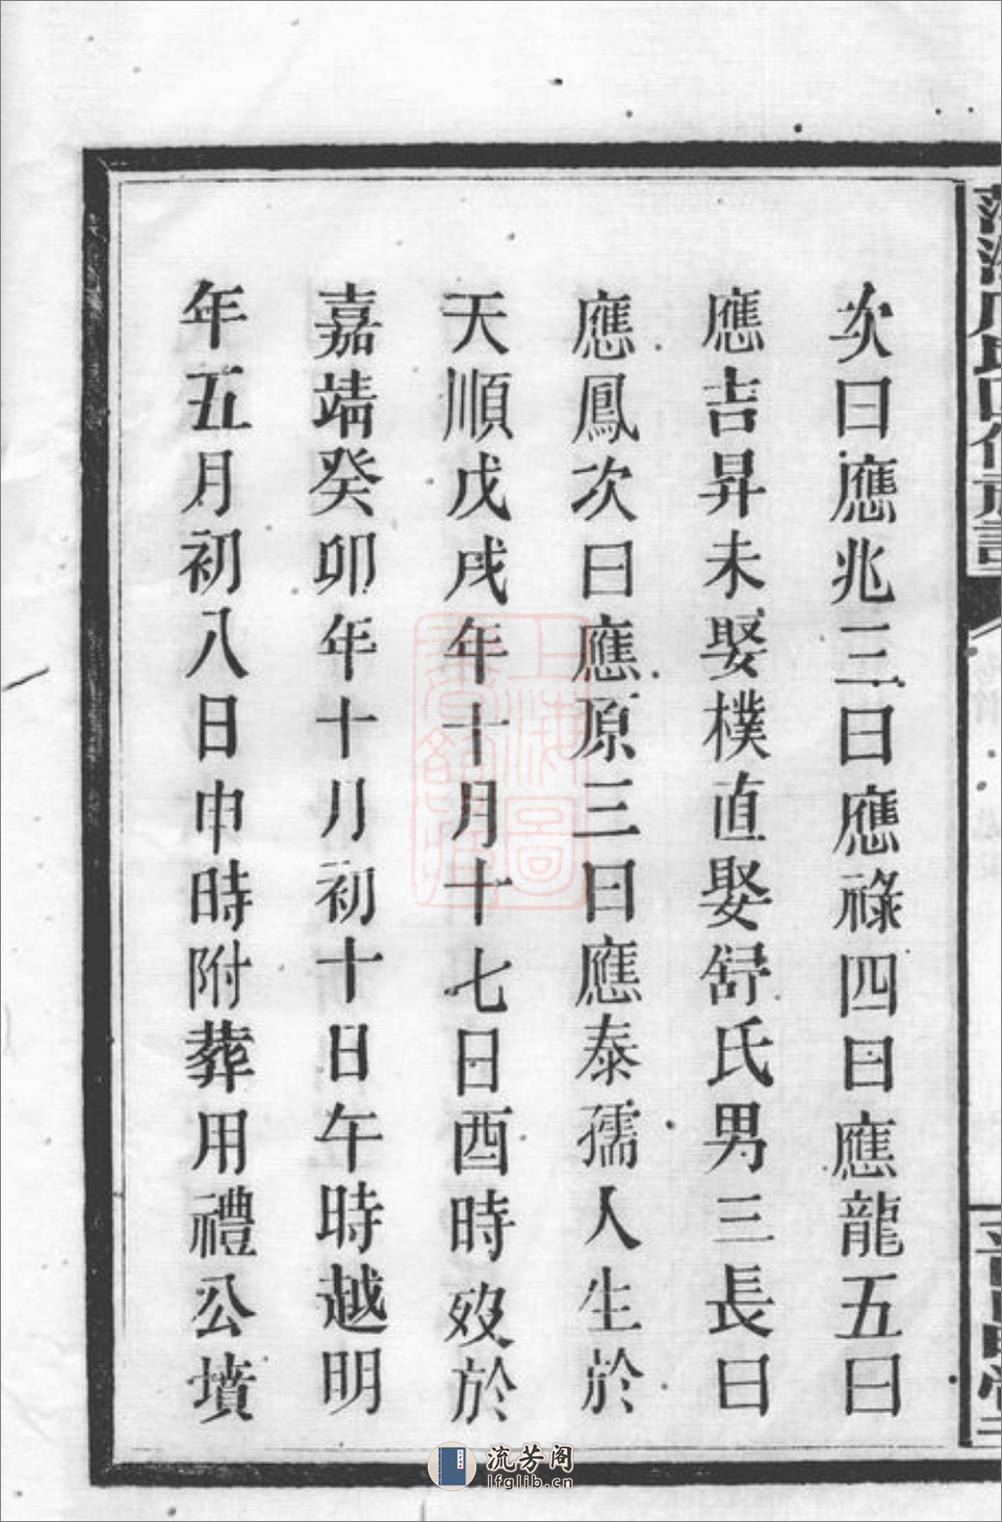 次曰應兆三曰應祿四曰應龍五曰
應吉昇未娶樸直娶舒氏男三長曰
應鳳次曰應原三曰應泰孺人生於
天順戊戌年十月十七日酉時歿於
嘉靖癸卯年十月初十日午時越明
年五月初八日申時附葬用禮公墳
上海圖
書館藏
流芳阁
lfglib.cn